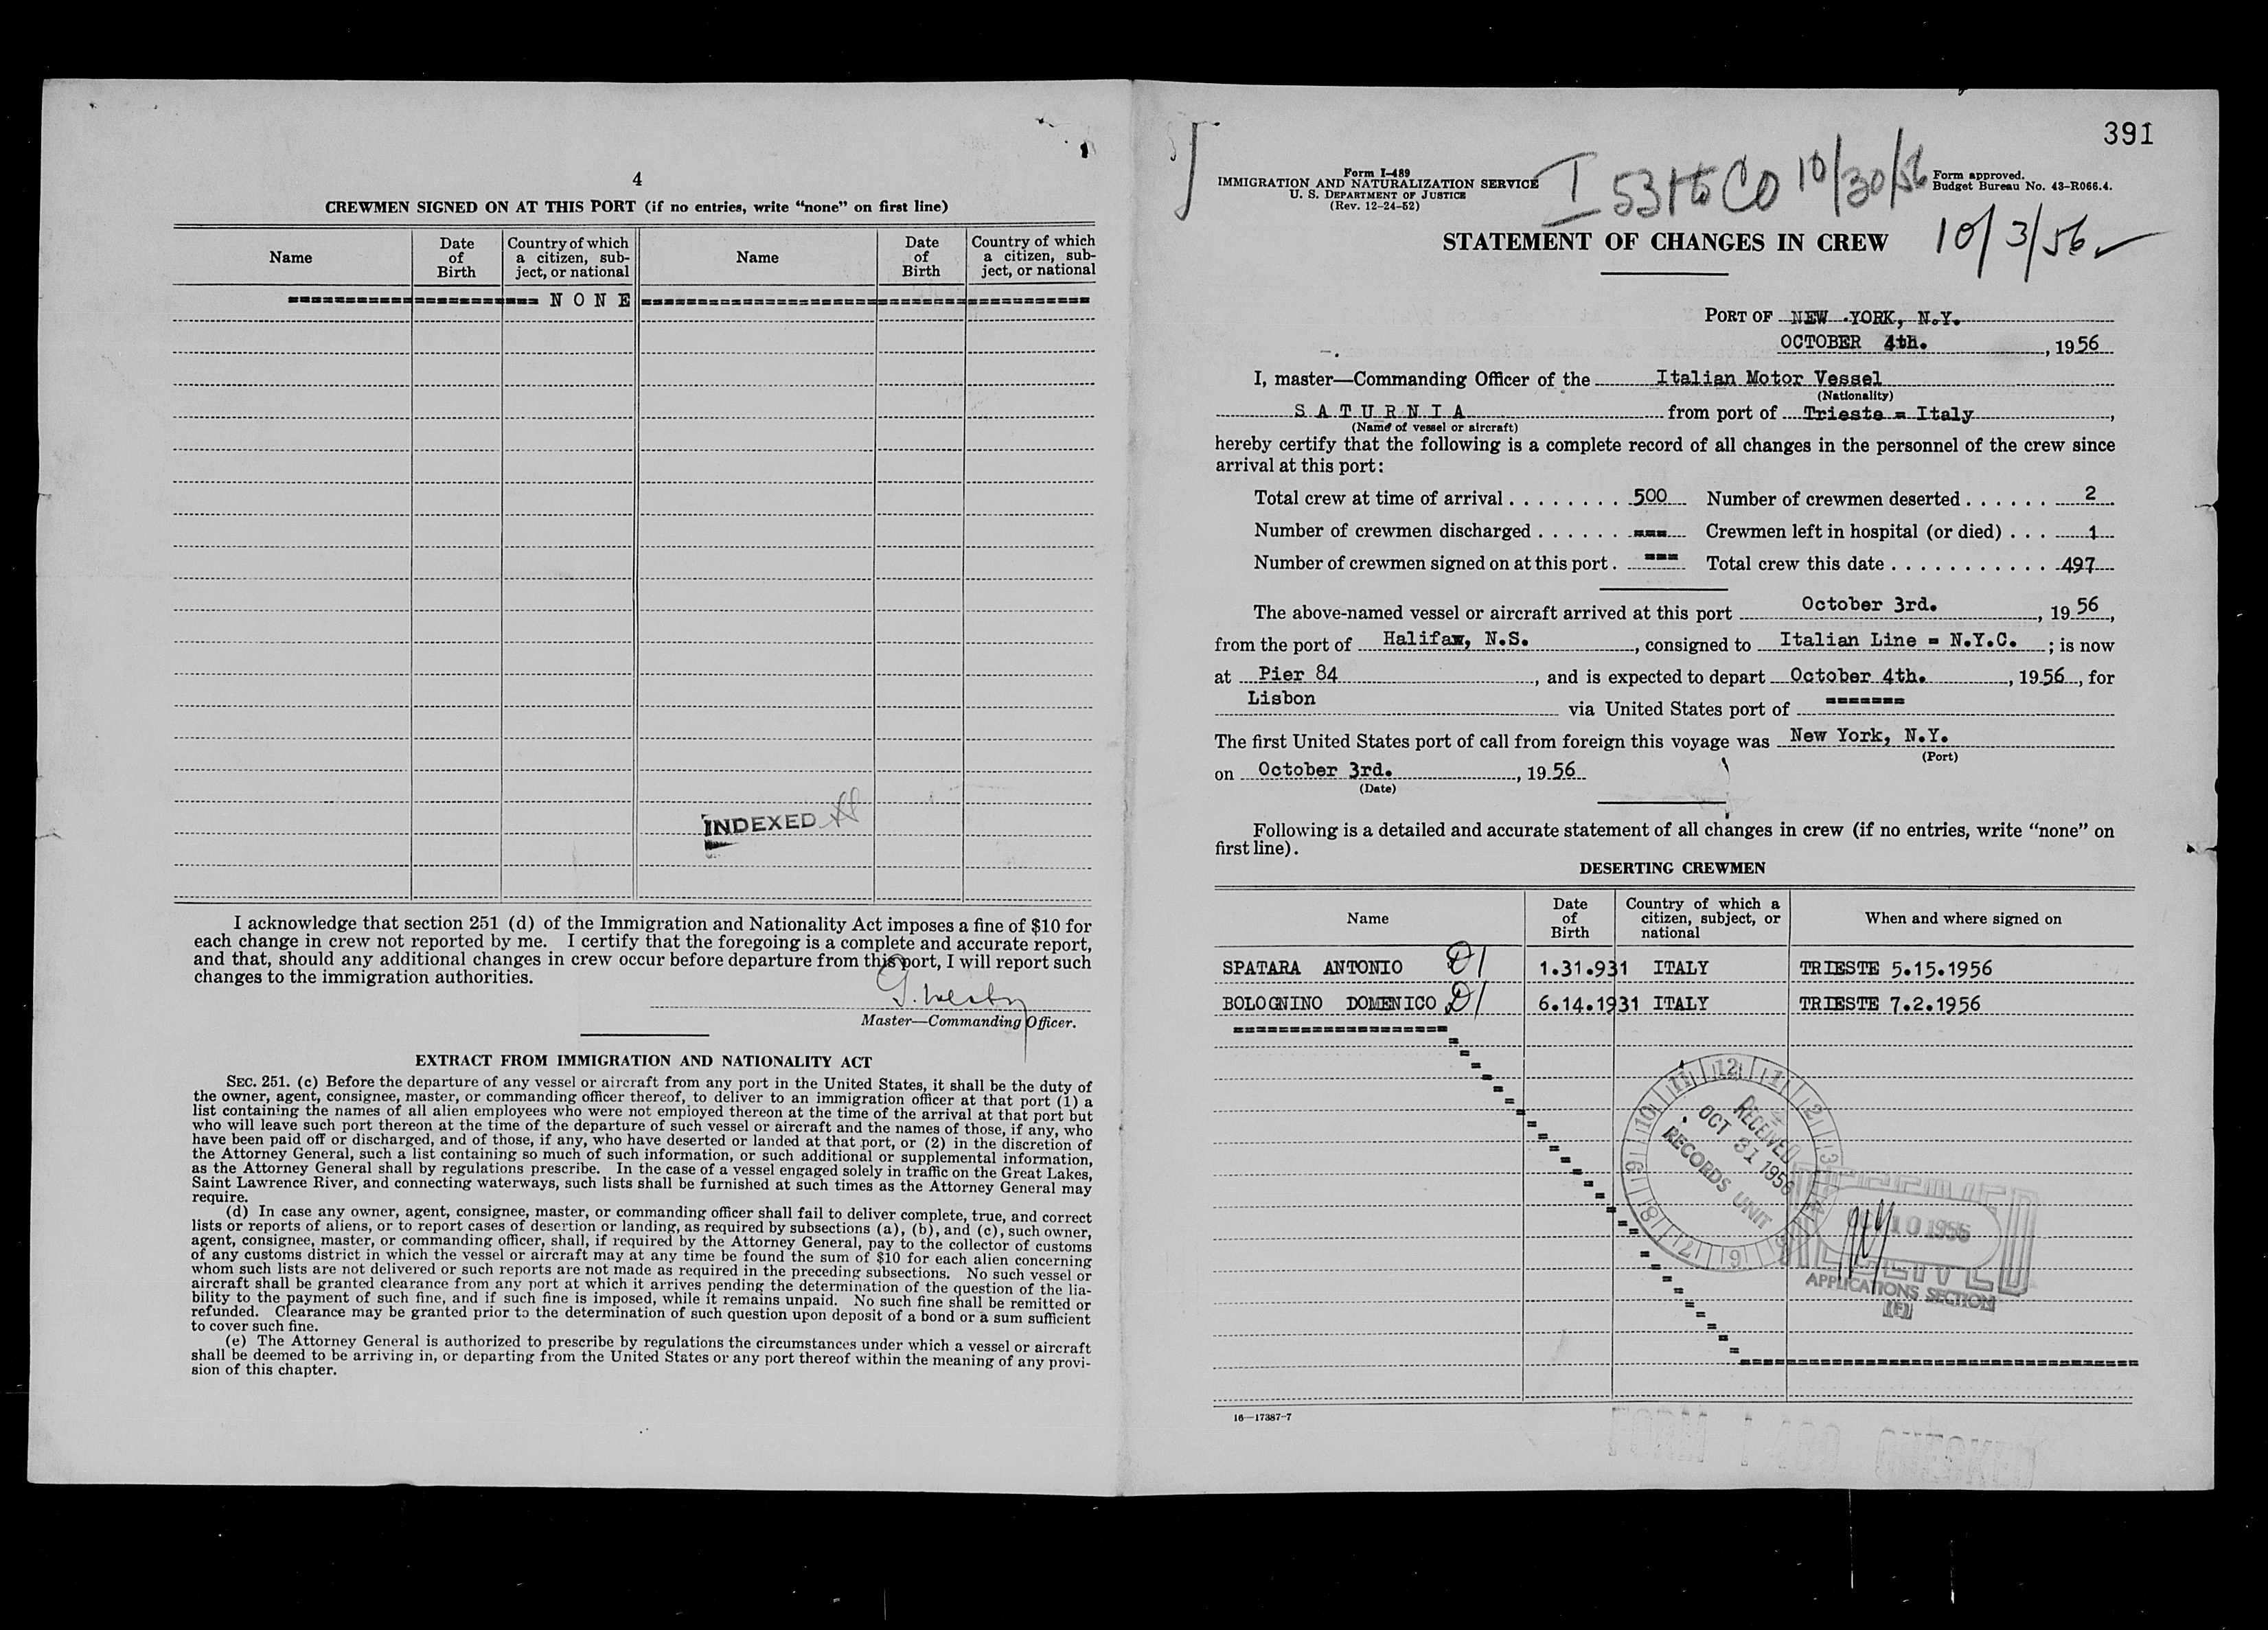 4
CREWMEN SIGNED ON AT THIS PORT (if no entries, write “none” on first line)
Name
Date of Birth
Country of which a citizen, subject, or national
Name
Date of Birth
Country of which a citizen, subject, or national
N O N E
INDEXED
I acknowledge that section 251 (d) of the Immigration and Nationality Act imposes a fine of $10 for
each change in crew not reported by me. I certify that the foregoing is a complete and accurate report,
and that, should any additional changes in crew occur before departure from this port, I will report such
changes to the immigration authorities.
Master—Commanding Officer.
EXTRACT FROM IMMIGRATION AND NATIONALITY ACT
SEC. 251. (c) Before the departure of any vessel or aircraft from any port in the United States, it shall be the duty of
the owner, agent, consignee, master, or commanding officer thereof, to deliver to an immigration officer at that port (1) a
list containing the names of all alien employees who were not employed thereon at the time of the arrival at that port but
who will leave such port thereon at the time of the departure of such vessel or aircraft and the names of those, if any, who
have been paid off or discharged, and of those, if any, who have deserted or landed at that port, or (2) in the discretion of
the Attorney General, such a list containing so much of such information, or such additional or supplemental information,
as the Attorney General shall by regulations prescribe. In the case of a vessel engaged solely in traffic on the Great Lakes,
Saint Lawrence River, and connecting waterways, such lists shall be furnished at such times as the Attorney General may
require.
(d) In case any owner, agent, consignee, master, or commanding officer shall fail to deliver complete, true, and correct
lists or reports of aliens, or to report cases of desertion or landing, as required by subsections (a), (b), and (c), such owner,
agent, consignee, master, or commanding officer, shall, if required by the Attorney General, pay to the collector of customs
of any customs district in which the vessel or aircraft may at any time be found the sum of $10 for each alien concerning
whom such lists are not delivered or such reports are not made as required in the preceding subsections. No such vessel or
aircraft shall be granted clearance from any port at which it arrives pending the determination of the question of the lia-
bility to the payment of such fine, and if such fine is imposed, while it remains unpaid. No such fine shall be remitted or
refunded. Clearance may be granted prior to the determination of such question upon deposit of a bond or a sum sufficient
to cover such fine.
(e) The Attorney General is authorized to prescribe by regulations the circumstances under which a vessel or aircraft
shall be deemed to be arriving in, or departing from the United States or any port thereof within the meaning of any provi-
sion of this chapter.
391
Form I-489
IMMIGRATION AND NATURALIZATION SERVICE
U. S. DEPARTMENT OF JUSTICE
(Rev. 12-24-52)
10/30/56
Form approved.
Budget Bureau No. 43-R066.4.
10/3/56
STATEMENT OF CHANGES IN CREW
PORT OF NEW YORK, N.Y.
OCTOBER 4th., 1956
I, master—Commanding Officer of the Italian Motor Vessel
(Nationality)
S A T U R N I A from port of Trieste = Italy,
(Name of vessel or aircraft)
hereby certify that the following is a complete record of all changes in the personnel of the crew since
arrival at this port:
Total crew at time of arrival . . . . . . . . 500 Number of crewmen deserted . . . . . . 2
Number of crewmen discharged . . . . . . === Crewmen left in hospital (or died) . . . 1
Number of crewmen signed on at this port . === Total crew this date . . . . . . . . . . . . 497
The above-named vessel or aircraft arrived at this port October 3rd., 1956,
from the port of Halifax, N.S., consigned to Italian Line = N.Y.C. ; is now
at Pier 84, and is expected to depart October 4th., 1956, for
Lisbon via United States port of =======
The first United States port of call from foreign this voyage was New York, N.Y.
(Port)
on October 3rd., 1956
(Date)
Following is a detailed and accurate statement of all changes in crew (if no entries, write “none” on
first line).
DESERTING CREWMEN
Name
Date of Birth
Country of which a citizen, subject, or national
When and where signed on
SPATARA ANTONIO D1 1.31.931 ITALY TRIESTE 5.15.1956
BOLOGNINO DOMENICO D1 6.14.1931 ITALY TRIESTE 7.2.1956
12 1 2 3 6 7 8 9 10 11
RECEIVED
OCT 31 1956
RECORDS UNIT
10 1956
APPLICATIONS SECTION
16—17387-7